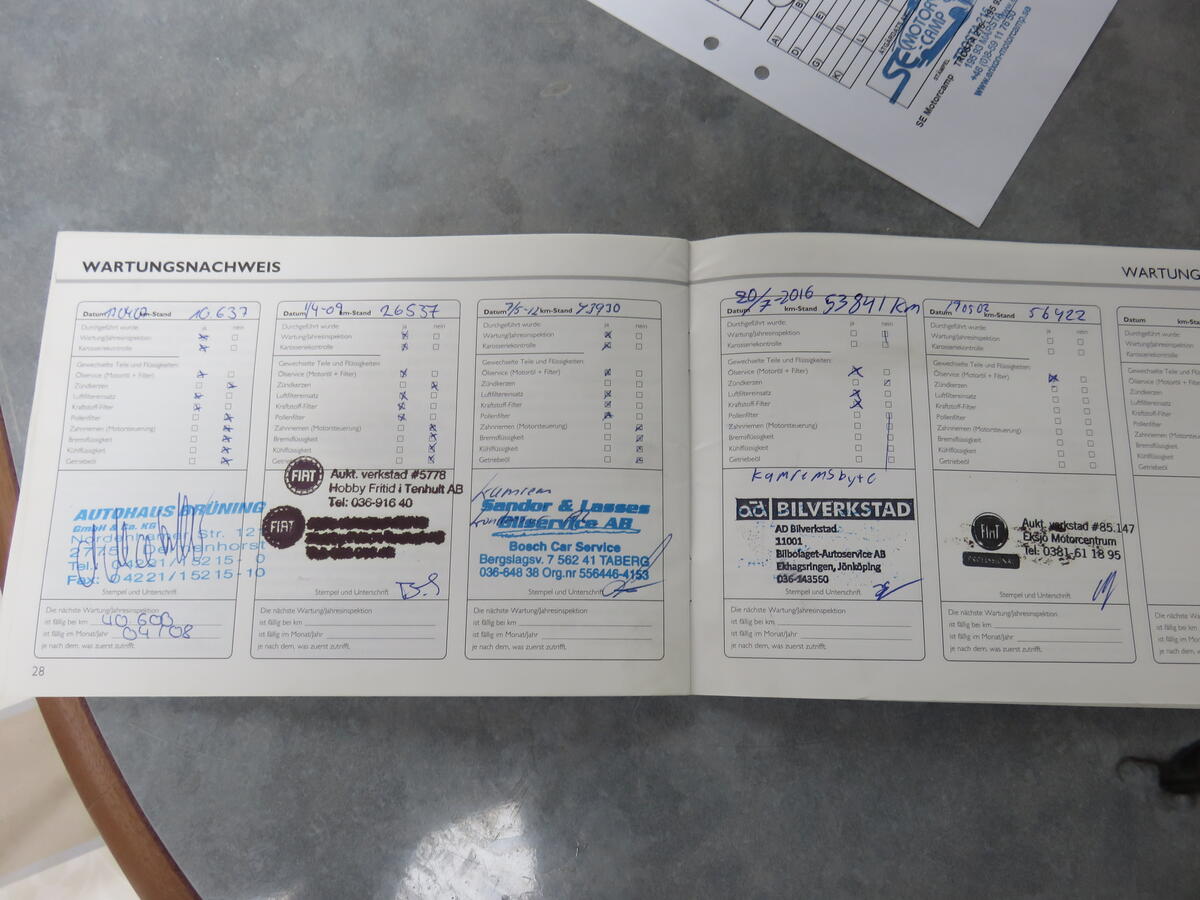 SE MOTOR
CAMP
STÄMPEL
SE Motorcamp
+46 (0)8-59 11 76 50
www.anton-motorcamp.se
WARTUNGSNACHWEIS
Datum km-Stand 10.637
Durchgeführt wurde: ja nein
Wartung/Jahresinspektion
Karosseriekontrolle
Gewechselte Teile und Flüssigkeiten:
Ölservice (Motoröl + Filter)
Zündkerzen
Luftfiltereinsatz
Kraftstoff-Filter
Pollenfilter
Zahnriemen (Motorsteuerung)
Bremsflüssigkeit
Kühlflüssigkeit
Getriebeöl
AUTOHAUS BRÜNING
GmbH & Co. KG
Nordenhamer Str. 12
Tel.: 04221/15215-0
Fax: 04221/15215-10
Die nächste Wartung/Jahresinspektion
ist fällig bei km 40.600
ist fällig im Monat/Jahr 04/08
je nach dem, was zuerst zutrifft.
28
Datum 1/4-09 km-Stand 26537
Durchgeführt wurde: ja nein
Wartung/Jahresinspektion
Karosseriekontrolle
Gewechselte Teile und Flüssigkeiten:
Ölservice (Motoröl + Filter)
Zündkerzen
Luftfiltereinsatz
Kraftstoff-Filter
Pollenfilter
Zahnriemen (Motorsteuerung)
Bremsflüssigkeit
Kühlflüssigkeit
FIAT
Aukt. verkstad #5778
Hobby Fritid i Tenhult AB
Tel: 036-916 40
FIAT
Stempel und Unterschrift
Die nächste Wartung/Jahresinspektion
ist fällig bei km
ist fällig im Monat/Jahr
je nach dem, was zuerst zutrifft.
Datum 7/5-12 km-Stand 43930
Durchgeführt wurde: ja nein
Wartung/Jahresinspektion
Karosseriekontrolle
Gewechselte Teile und Flüssigkeiten:
Ölservice (Motoröl + Filter)
Zündkerzen
Luftfiltereinsatz
Kraftstoff-Filter
Pollenfilter
Zahnriemen (Motorsteuerung)
Bremsflüssigkeit
Kühlflüssigkeit
Getriebeöl
Kamrem
Sandor & Lasses
Bilservice AB
Bosch Car Service
Bergslagsv. 7 562 41 TABERG
036-648 38 Org.nr 556446-4153
Stempel und Unterschrift
Die nächste Wartung/Jahresinspektion
ist fällig bei km
ist fällig im Monat/Jahr
je nach dem, was zuerst zutrifft.
Datum 20/7-2016 km-Stand 53841 km
Durchgeführt wurde: ja nein
Wartung/Jahresinspektion
Karosseriekontrolle
Gewechselte Teile und Flüssigkeiten:
Ölservice (Motoröl + Filter)
Zündkerzen
Luftfiltereinsatz
Kraftstoff-Filter
Pollenfilter
Zahnriemen (Motorsteuerung)
Bremsflüssigkeit
Kühlflüssigkeit
Getriebeöl
Kamremsbyte
ad BILVERKSTAD
AD Bilverkstad
11001
Bilbolaget-Autoservice AB
Ekhagsringen, Jönköping
036-143550
Stempel und Unterschrift
Die nächste Wartung/Jahresinspektion
ist fällig bei km
ist fällig im Monat/Jahr
je nach dem, was zuerst zutrifft.
WARTUNG
Datum 190502 km-Stand 56422
Durchgeführt wurde: ja nein
Wartung/Jahresinspektion
Karosseriekontrolle
Gewechselte Teile und Flüssigkeiten:
Ölservice (Motoröl + Filter)
Zündkerzen
Luftfiltereinsatz
Kraftstoff-Filter
Pollenfilter
Zahnriemen (Motorsteuerung)
Bremsflüssigkeit
Kühlflüssigkeit
Getriebeöl
FIAT
PROFESSIONAL
Aukt. verkstad #85.147
Eksjö Motorcentrum
Tel: 0381-61 18 95
Stempel und Unterschrift
Die nächste Wartung/Jahresinspektion
ist fällig bei km
ist fällig im Monat/Jahr
je nach dem, was zuerst zutrifft.
Datum km-Sta
Durchgeführt wurde:
Wartung/Jahresinspektion
Karosseriekontrolle
Gewechselte Teile und Flüss
Ölservice (Motoröl + Filter)
Zündkerzen
Luftfiltereinsatz
Kraftstoff-Filter
Pollenfilter
Zahnriemen (Motorsteuer
Bremsflüssigkeit
Kühlflüssigkeit
Getriebeöl
Die nächste Wartung/
ist fällig bei km
ist fällig im Monat/Ja
je nach dem, was zu